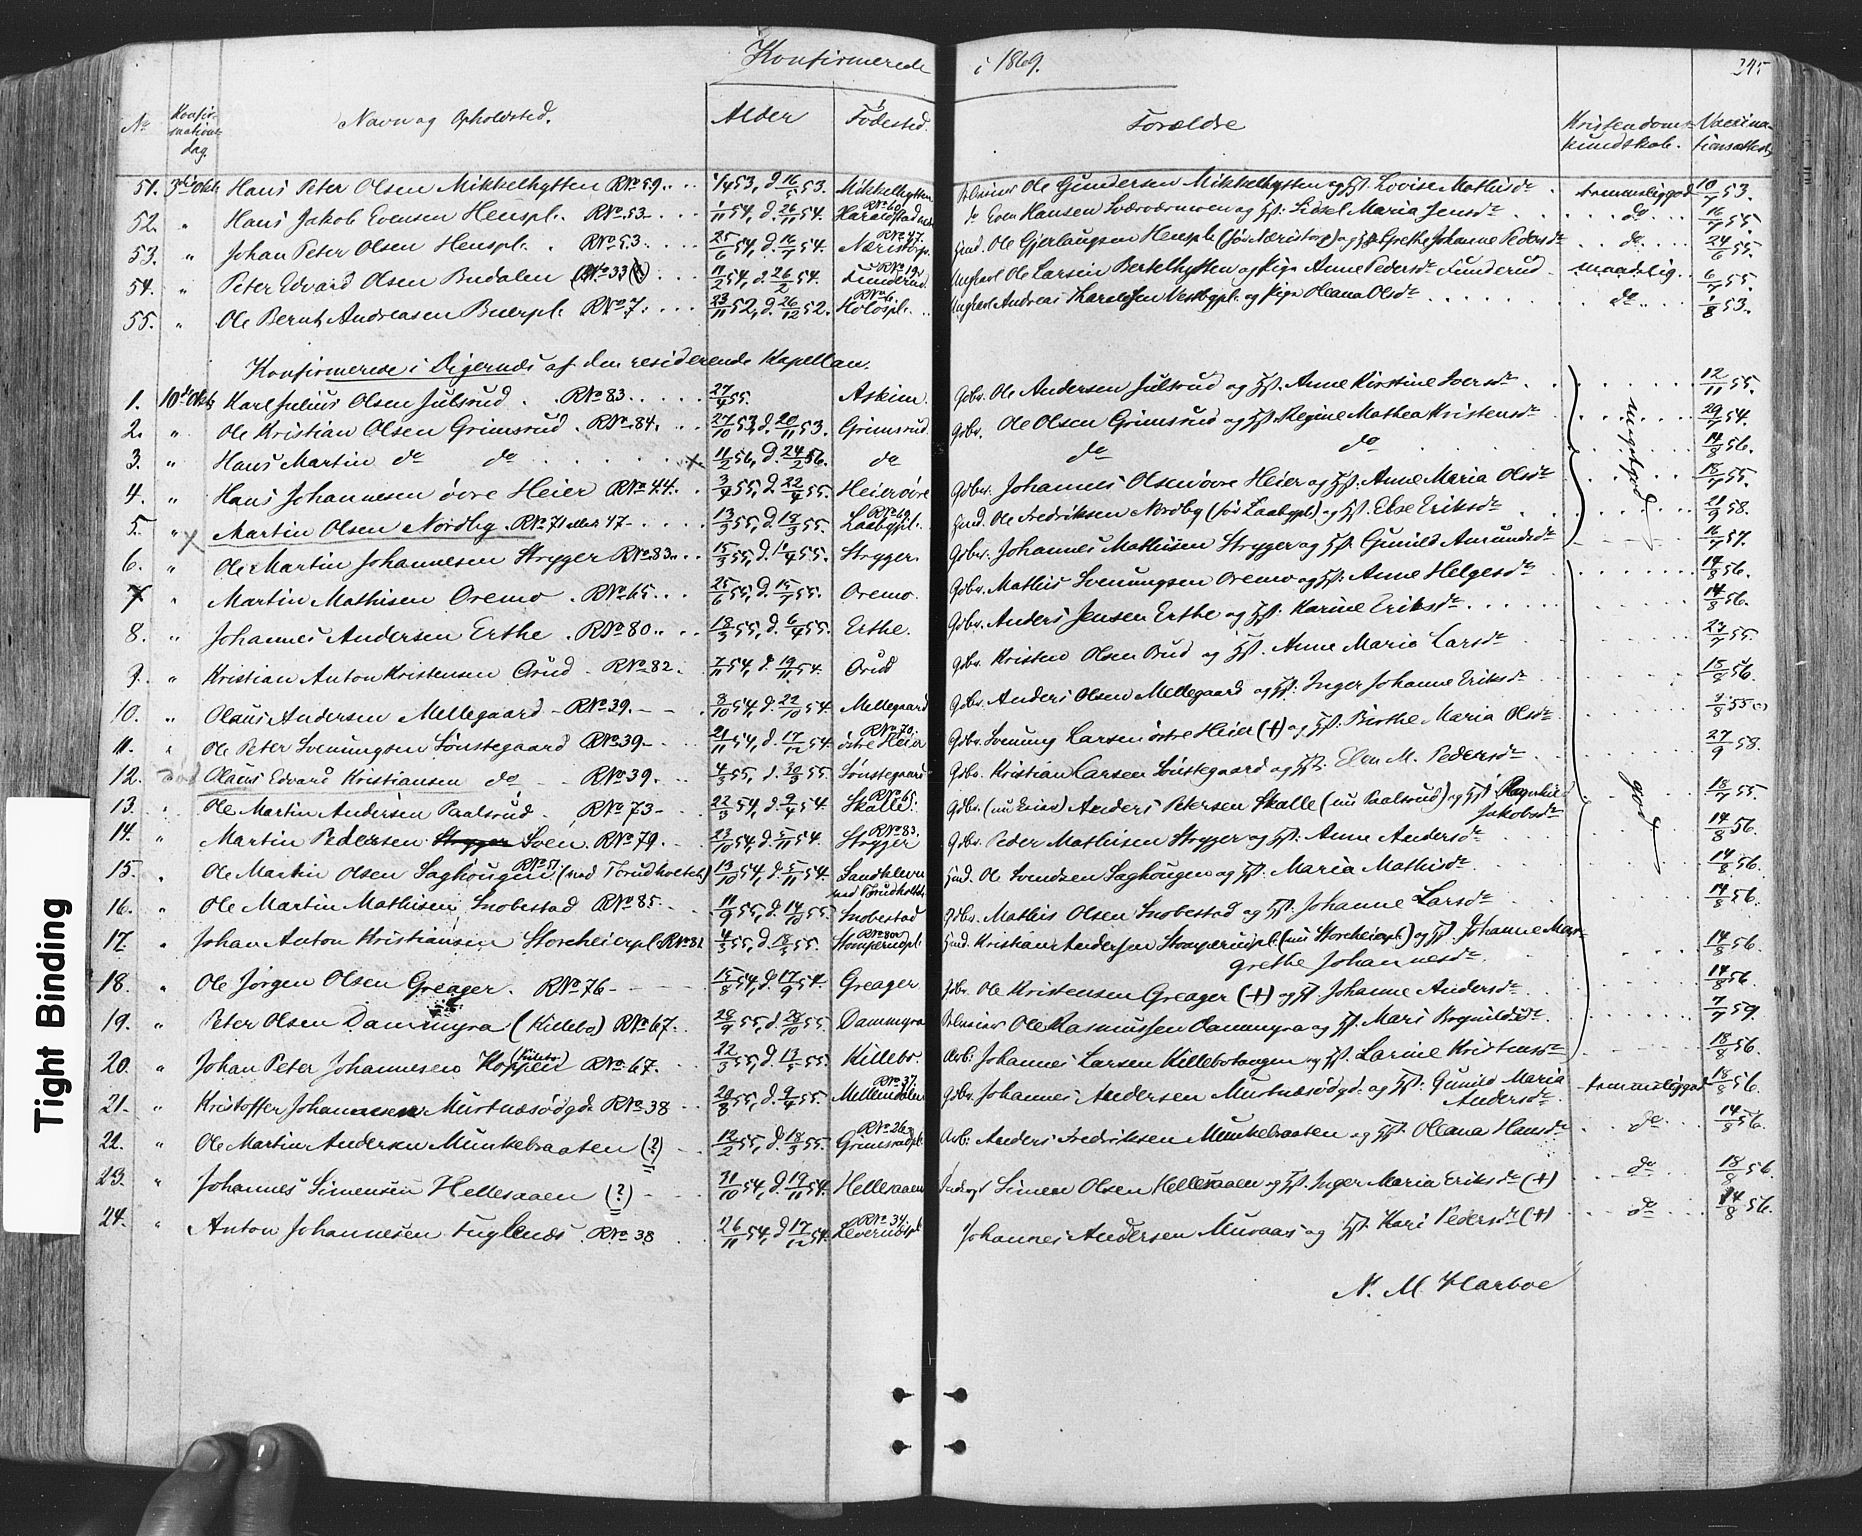 Konfirmerede i 1869. 245
No Konfir-mations-dag. Navn og Opholdsted. Alder Fødested. Forældre Kristendoms-kundskab. Vaccina-tionsattest
51. 3die Okt. Hans Peter Olsen Mikkelhytten R No 59. 53, d. 16/ 53. Mikkelhytten Ole Gundersen Mikkelhytten og Hst. Lovise Mathisdr. temmeliggod 10/7 53.
52. " Hans Jakob Evensen Henspl. R No 53 1/11 54, d. 26/11 54. R No 60 do Even Hansen og Hst. Sidsel Maria Jensdr. do 16/7 55.
53. " Johan Peter Olsen Henspl. R No 53 25/6 54, d. 16/7 54. Næristorp. R No 47 Hmd. Ole Gjerlaugsen Henspl. (før Næristorp) og Hst. Grethe Johanne Pedersdr. do 24/6 55.
54. " Peter Edvard Olsen Budalen (R No 33) 11/2 54, d. 26/2 54. Funderud R No 19 Ungkarl Ole Larsen Bertelhytten og Pige Anne Pedersdr. Funderud maadelig. 6/7 55.
55. " Ole Bernt Andreasen Buerpl. R No 7. 23/11 52, d. 26/12 52. Holospl. R No 6. Ungkarl Andreas Haraldsen Vestbypl. og Pige Oleana Olsdr. do 1/8 53.
Konfirmerede i Digernæs af den residerende Kapellan.
1. 10de Okt. Karl Julius Olsen Julsrud. R No 83 27/4 55. Askim Gdbr. Ole Andersen Julsrud og Hst. Anne Kirstine Iversdr. 12/11 55.
2. " Ole Kristian Olsen Grimsrud. R No 84. 27/10 53, d. 20/11 53. Grimsrud Gdbr. Ole Olsen Grimsrud og Hst. Regine Mathea Kristensdr. meget god 29/7 54.
3. " Hans Martin do do 11/2 56, d. 24/2 56. do do do 14/8 56.
4. " Hans Johannesen øvre Heier R No 44. 3/4 55, d. 22/4 55. Heier øvre Gdbr. Johannes Olsen øvre Heier og Hst. Anne Maria Olsdr. 18/7 55.
5. " Martin Olsen Nordby. R No 71 eller 47 13/3 55, d. 19/3 55. Laabypl. R No 69 Hmd. Ole Fredriksen Nordby (før Laabypl.) og Hst. Else Eriksdr. 21/9 58.
6. " Ole Martin Johannesen Stryger R No 83. 15/3 55, d. 1/4 55. Strygger. Gdbr. Johannes Mathisen Strygger og Hst. Gunild Amundsdr. 16/7 57.
7 " Martin Mathisen Oremo. R No 65. 25/6 55, d. 15/7 55. Oremo. Gdbr. Mathis Svenungsen Oremo og Hst. Anne Helgesdr. 14/8 56.
8. " Johannes Andersen Erthe. R No 80. 18/3 55, d. 6/4 55. Erthe. Gdbr. Anders Jensen Erthe og Hst. Karine Eriksdr. 14/8 56.
9. " Kristian Anton Kristensen Orud. R No 82. 7/11 54, d. 19/11 54. Orud Gdbr. Kristen Olsen Orud og Hst. Anne Maria Larsdr. 27/7 55.
10. " Olaus Andersen Mellegaard. R No 39. 8/10 54, d. 22/10 54. Mellegaard Gdbr. Anders Olsen Mellegaard og Hst. Inger Johanne Eriksdr. 15/8 56.
11. " Ole Peter Svenungsen Sønstegaard R No 39 21/11 54, d. 17/12 54. østre Heier R No 70. Gdbr. Svenung Larsen østre Heier (+) og Hst. Birthe Maria Olsdr. 7/8 55
12. " Olaus Edvard Kristiansen do R No 39. 4/3 55, d. 30/3 55. Sønstegaard Gdbr. Kristian Larsen Sønstegaard og Hst. Elen M. Pedersdr. 27/9 58.
13. " Ole Martin Andersen Paalsrud. R No 73 22/3 54, d. 9/4 54. Skalle. R No 65. Gdbr. Anders Petersen Skalle (nu Paalsrud) og Hst. Ragnhild Jakobsdr. god 18/7 55.
14. " Martin Pedersen Strygger Sven. R No 79. 23/10 54, d. 5/11 54. Strygger R No 83. Gdbr. Peder Mathisen Strygger og Hst. Anne Andersdr. 14/8 56.
15. " Ole Martin Olsen Saghougen R No 51 (ved Torudholtet) 13/10 54, d. 5/11 54. Sandkleven ved Torudholtet Hmd. Ole Svendsen Saghougen og Hst. Maria Mathisdr. 14/8 56.
16. " Ole Martin Mathisen Snobestad R No 85. 11/9 55, d. 14/10 55. Snobestad Gdbr. Mathis Olsen Snobestad og Hst. Johanne Larsdr. 14/8 56.
17. " Johan Anton Kristiansen Storeheierpl. R No 82 4/3 55, d. 18/5 55. Stomperudpl. R No 80 Hmd. Kristian Andersen Stomperudpl. (nu Storeheierpl.) og Hst. Johanne Margrethe Johannesdr. 14/8 56.
18. " Ole Jørgen Olsen Greager. R No 76 15/8 54, d. 17/9 54. Greager Gdbr. Ole Kristensen Greager (+) og Hst. Johanne Andersdr. 14/8 56.
19. " Peter Olsen Dammyra (Killebo) R No 67. 28/9 55, d. 28/10 55. Dammyra Ole Rasmussen Dammyra og Hst. Mari 7/7 59.
20. " Johan Peter Johannesen Koppen (Killebo) R No 67. 22/3 55, d. 13/5 55. Killebo. Arb. Johannes Larsen Killebohaugen og Hst. Larine Kristensdr. 18/8 56.
21. " Kristoffer Johannesen Murtnæsødgd. R No 38 20/8 55, d. 9/4 55. Mellemdalen R No 37 Gdbr. Johannes Andersen Murtnæsødgd. og Hst. Gunild Maria Andersdr. temmeliggod 18/8 56.
22. " Ole Martin Andersen Munkebraaten (?) 12/2 55, d. 18/3 55. Grimsrudpl. R No 26 Arb: Anders Fredriksen Munkebraaten og Hst. Oleana Hansdr. do 14/8 56.
23. " Johannes Simensen Hellesaaen (?) 31/10 54, d. 19/11 54. Hellesaaen Simen Olsen Hellesaaen og Hst. Inger Maria Eriksdr. (+) do 18/8 56.
24. " Anton Johannesen Fuglenæs. R No 38 26/11 54, d. 17/12 54. R No 34. Johannes Andersen Musaas og Hst. Kari Pedersdr. (+) do 14/8 56.
N. M. Harboe
Tight Binding